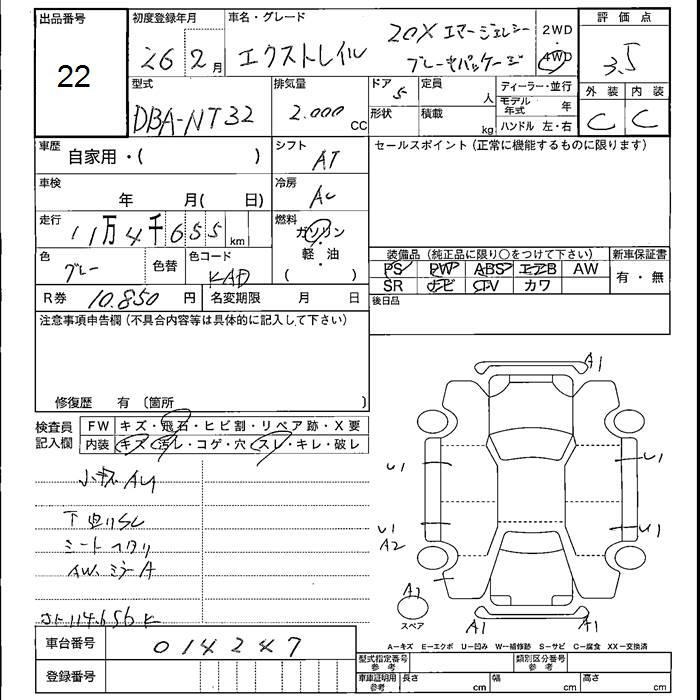 出品番号 初度登録年月 車名・グレード 評価点
22
26 2月 エクストレイル 20X エマージェンシー 2WD
ブレーキパッケージ 4WD 3.5
型式 排気量 ドア 定員 ディーラー・並行 外装 内装
DBA-NT32 2.000 CC 5 人 モデル年式 年 C C
形状 積載 kg ハンドル 左・右
車歴 自家用・( ) シフト AT セールスポイント(正常に機能するものに限ります)
車検 年 月( 日) 冷房 AC
走行 11万4千655km 燃料 ガソリン・軽油 ( )
色 グレー 色替 色コード KAD 装備品(純正品に限り○をつけて下さい) 新車保証書
PS PW ABS エアB AW 有・無
SR ナビ TV カワ
R券 10.850円 名変期限 月 日 後日品
注意事項申告欄(不具合内容等は具体的に記入して下さい)
修復歴 有 〔箇所 〕
検査員記入欄 FW キズ・飛石・ヒビ割・リペア跡・X要
内装 キズ・汚レ・コゲ・穴・スレ・キレ・破レ
小キズ AU
シートヘタリ
AW. ミラーA
114.656 K
A1
U1 U1
U1 U1
A2
A1
スペア A1 A1
車台番号 014247
A−キズ E−エクボ U−凹み W−補修跡 S−サビ C−腐食 XX−交換済
登録番号
型式指定番号 参考 類別区分番号 参考
車庫証明用 参考 長さ cm 幅 cm 高さ cm